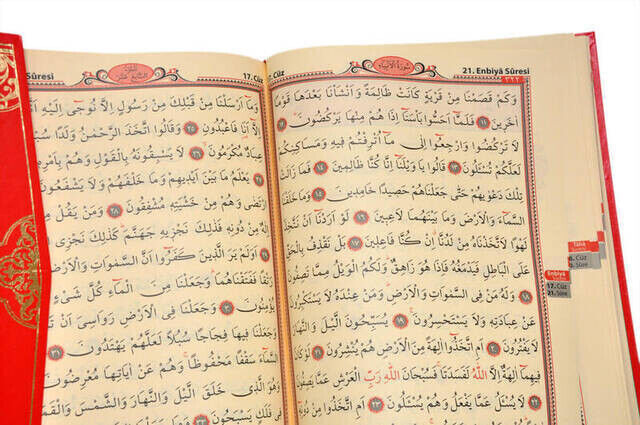 21. Enbiyâ Sûresi
سورة الأنبياء
وَكَمْ قَصَمْنَا مِنْ قَرْيَةٍ كَانَتْ ظَالِمَةً وَاَنْشَأْنَا بَعْدَهَا قَوْمًا
اٰخَر۪ينَ ﴿١١﴾ فَلَمَّٓا اَحَسُّوا بَأْسَنَٓا اِذَا هُمْ مِنْهَا يَرْكُضُونَ ﴿١٢﴾
لَا تَرْكُضُوا وَارْجِعُٓوا اِلٰى مَٓا اُتْرِفْتُمْ ف۪يهِ وَمَسَاكِنِكُمْ
لَعَلَّكُمْ تُسْـَٔلُونَ ﴿١٣﴾ قَالُوا يَا وَيْلَنَٓا اِنَّا كُنَّا ظَالِم۪ينَ ﴿١٤﴾ فَمَا زَالَتْ
تِلْكَ دَعْوٰيهُمْ حَتّٰى جَعَلْنَاهُمْ حَص۪يدًا خَامِد۪ينَ ﴿١٥﴾ وَمَا خَلَقْنَا
السَّمَٓاءَ وَالْاَرْضَ وَمَا بَيْنَهُمَا لَاعِب۪ينَ ﴿١٦﴾ لَوْ اَرَدْنَٓا اَنْ نَتَّخِذَ
لَهْوًا لَاتَّخَذْنَاهُ مِنْ لَدُنَّٓا اِنْ كُنَّا فَاعِل۪ينَ ﴿١٧﴾ بَلْ نَقْذِفُ بِالْحَقِّ
عَلَى الْبَاطِلِ فَيَدْمَغُهُ فَاِذَا هُوَ زَاهِقٌ وَلَكُمُ الْوَيْلُ مِمَّا تَصِفُونَ
﴿١٨﴾ وَلَهُ مَنْ فِي السَّمٰوَاتِ وَالْاَرْضِ وَمَنْ عِنْدَهُ لَا يَسْتَكْبِرُونَ
عَنْ عِبَادَتِه۪ وَلَا يَسْتَحْسِرُونَ ﴿١٩﴾ يُسَبِّحُونَ الَّيْلَ وَالنَّهَارَ
لَا يَفْتُرُونَ ﴿٢٠﴾ اَمِ اتَّخَذُٓوا اٰلِهَةً مِنَ الْاَرْضِ هُمْ يُنْشِرُونَ ﴿٢١﴾ لَوْ كَانَ
ف۪يهِمَٓا اٰلِهَةٌ اِلَّا اللّٰهُ لَفَسَدَتَا فَسُبْحَانَ اللّٰهِ رَبِّ الْعَرْشِ عَمَّا يَصِفُونَ
﴿٢٢﴾ لَا يُسْـَٔلُ عَمَّا يَفْعَلُ وَهُمْ يُسْـَٔلُونَ ﴿٢٣﴾ اَمِ اتَّخَذُوا مِنْ دُونِه۪ٓ
Tâhâ
Enbiyâ
17. Cüz
21. Sûre
Sûresi
17. Cüz
وَمَٓا اَرْسَلْنَا مِنْ قَبْلِكَ مِنْ رَسُولٍ اِلَّا نُوح۪ٓي اِلَيْهِ
اِلَّٓا اَنَا فَاعْبُدُونِ ﴿٢٥﴾ وَقَالُوا اتَّخَذَ الرَّحْمٰنُ وَلَدًا
عِبَادٌ مُكْرَمُونَ ﴿٢٦﴾ لَا يَسْبِقُونَهُ بِالْقَوْلِ وَهُمْ بِاَمْرِه۪
يَعْلَمُ مَا بَيْنَ اَيْد۪يهِمْ وَمَا خَلْفَهُمْ وَلَا يَشْفَعُونَ
وَهُمْ مِنْ خَشْيَتِه۪ مُشْفِقُونَ ﴿٢٨﴾ وَمَنْ يَقُلْ
مِنْ دُونِه۪ فَذٰلِكَ نَجْز۪يهِ جَهَنَّمَ كَذٰلِكَ نَجْزِي
اَوَلَمْ يَرَ الَّذ۪ينَ كَفَرُٓوا اَنَّ السَّمٰوَاتِ وَالْاَرْضَ
رَتْقًا فَفَتَقْنَاهُمَا وَجَعَلْنَا مِنَ الْمَٓاءِ كُلَّ شَيْءٍ
يُؤْمِنُونَ ﴿٣٠﴾ وَجَعَلْنَا فِي الْاَرْضِ رَوَاسِيَ اَنْ
ف۪يهَا فِجَاجًا سُبُلًا لَعَلَّهُمْ يَهْتَدُونَ ﴿٣١﴾
السَّمَٓاءَ سَقْفًا مَحْفُوظًا وَهُمْ عَنْ اٰيَاتِهَا مُعْرِضُونَ
وَهُوَ الَّذ۪ي خَلَقَ الَّيْلَ وَالنَّهَارَ وَالشَّمْسَ وَالْقَمَرَ
ف۪ي فَلَكٍ يَسْبَحُونَ